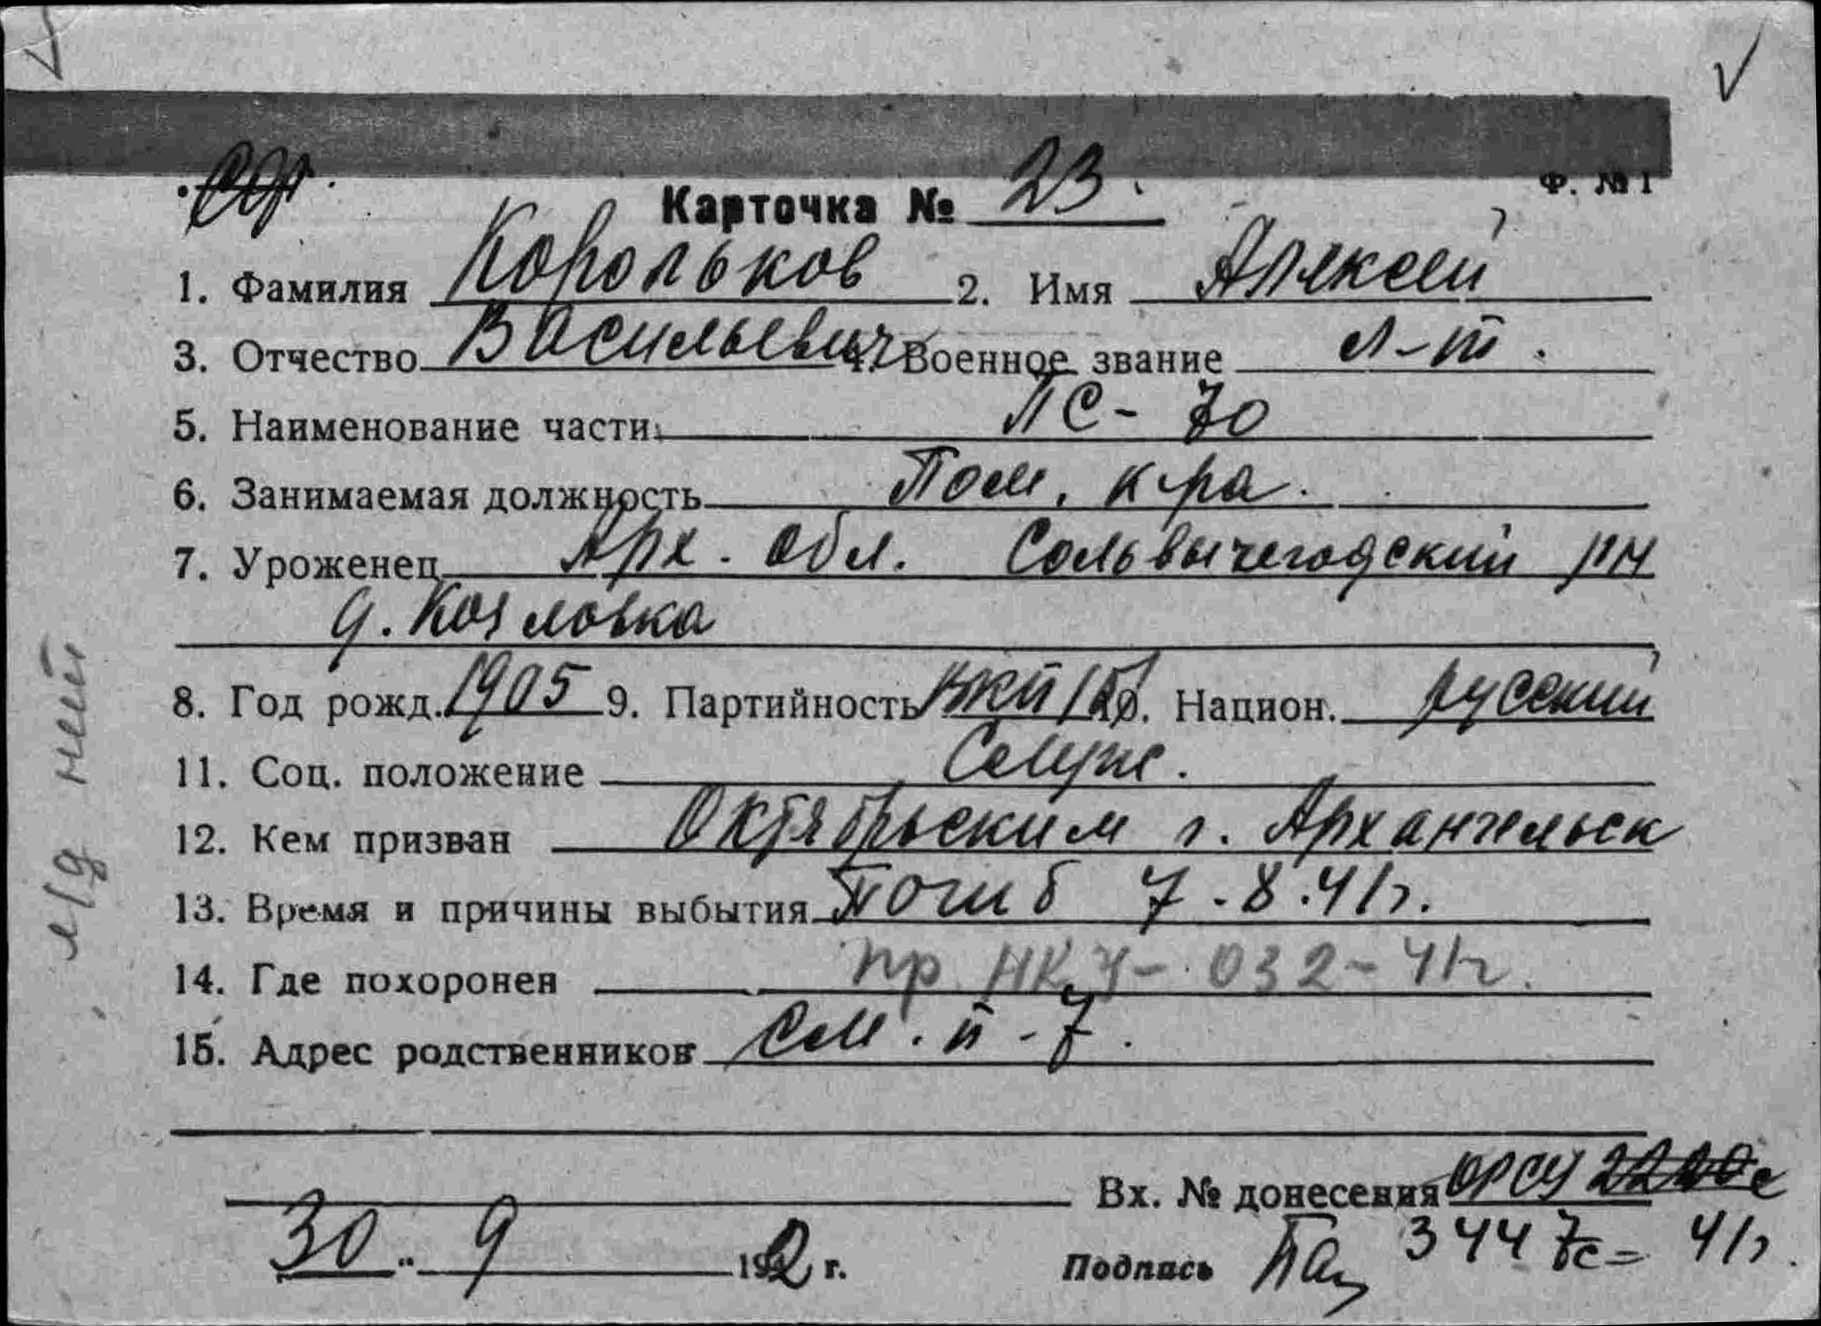 Ф. № 1
Карточка № 23
1. Фамилия Корольков 2. Имя Алексей
3. Отчество Васильевич 4. Военное звание л-т.
5. Наименование части ЛС-70
6. Занимаемая должность Пом. к-ра.
7. Уроженец Арх. обл. Сольвычегодский р-н
д. Козловка
8. Год рожд. 1905 9. Партийность ВКП/б/ 10. Национ. русский
11. Соц. положение Служ.
12. Кем призван Октябрьским г. Архангельск
13. Время и причины выбытия Погиб 7.8.41г.
14. Где похоронен пр НК У- 032-41г.
15. Адрес родственников См. п-7.
л/д нет
Вх. № донесения ОРСУ
30. 9 192 г. Подпись 3447с = 41г.